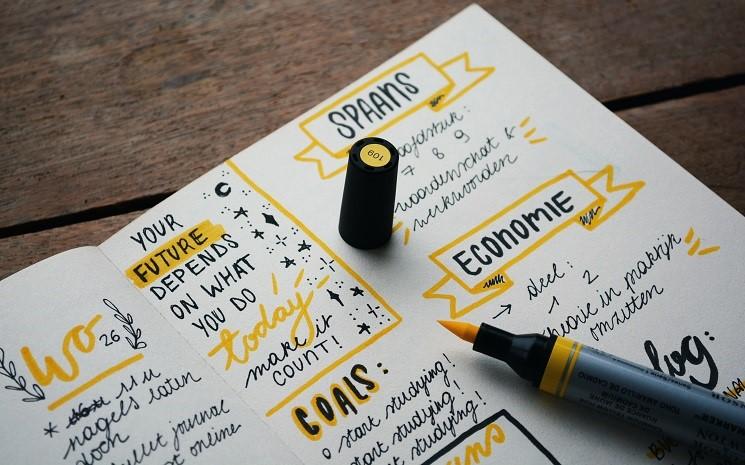 Wo 26
11 u
nagels laten
doen
bullet journal
online
YOUR
FUTURE
DEPENDS
ON WHAT
YOU DO
today
make it
COUNT!
GOALS:
start studying!
start studying!
start studying!
SPAANS
7 8 9
woordenschat &
werkwoorden
ECONOMIE
→ deel:
1 2
theorie in praktijk
omzetten
log:
609